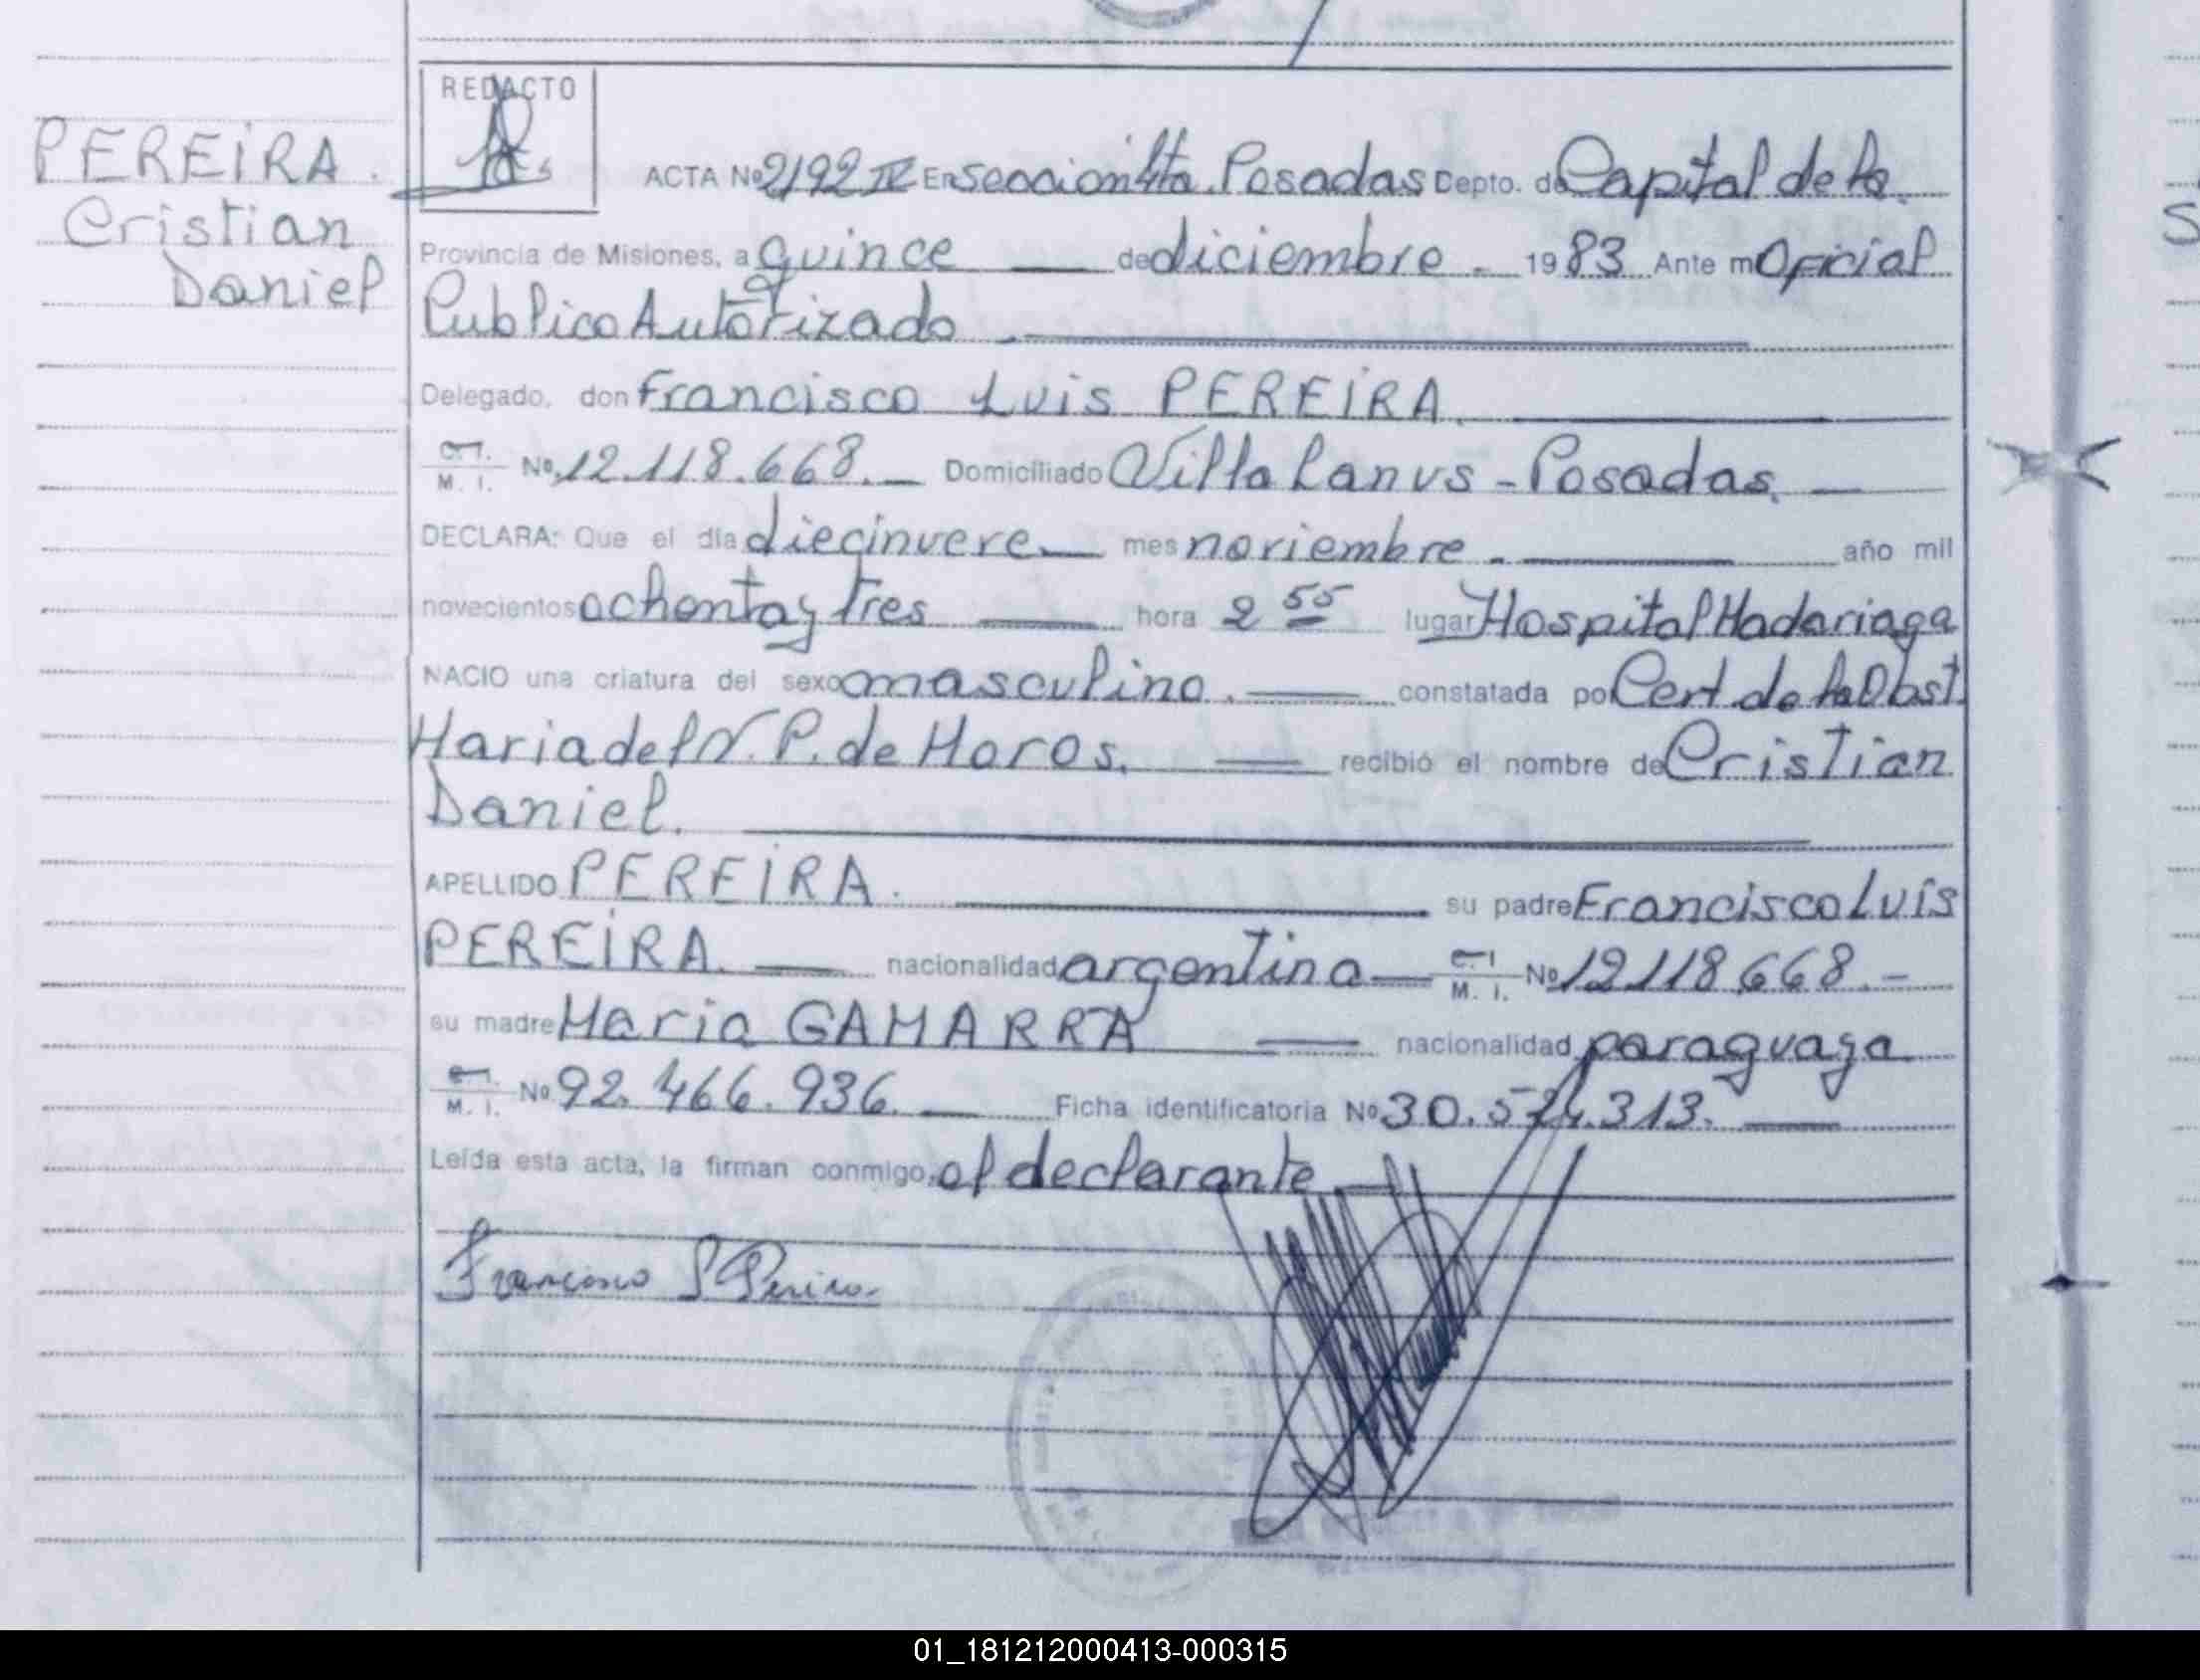 REDACTO
PEREIRA.
Cristian
Daniel
ACTA Nº 2192 IV En Seccion 4ta. Posadas Depto. de Capital de la
Provincia de Misiones, a quince de diciembre. 1983 Ante mi Oficial
Publico Autorizado.
Delegado, don Francisco Luis PEREIRA.
C.I. M. I. Nº 12.118.668. Domiciliado Villa Lanus - Posadas.
DECLARA: Que el día diecinueve mes noviembre. año mil
novecientos ochenta y tres hora 2 55 lugar Hospital Madariaga
NACIO una criatura del sexo masculino. constatada por Cert. de la Obst.
Maria del N. P. de Moros. recibió el nombre de Cristian
Daniel.
APELLIDO PEREIRA. su padre Francisco Luis
PEREIRA. nacionalidad argentina C.I. M. I. Nº 12118.668.-
su madre Maria GAMARRA nacionalidad paraguaya
C.I. M. I. Nº 92.466.936. Ficha identificatoria Nº 30.524.313.
Leída esta acta, la firman conmigo, el declarante
Francisco L Pereira
01_181212000413-000315